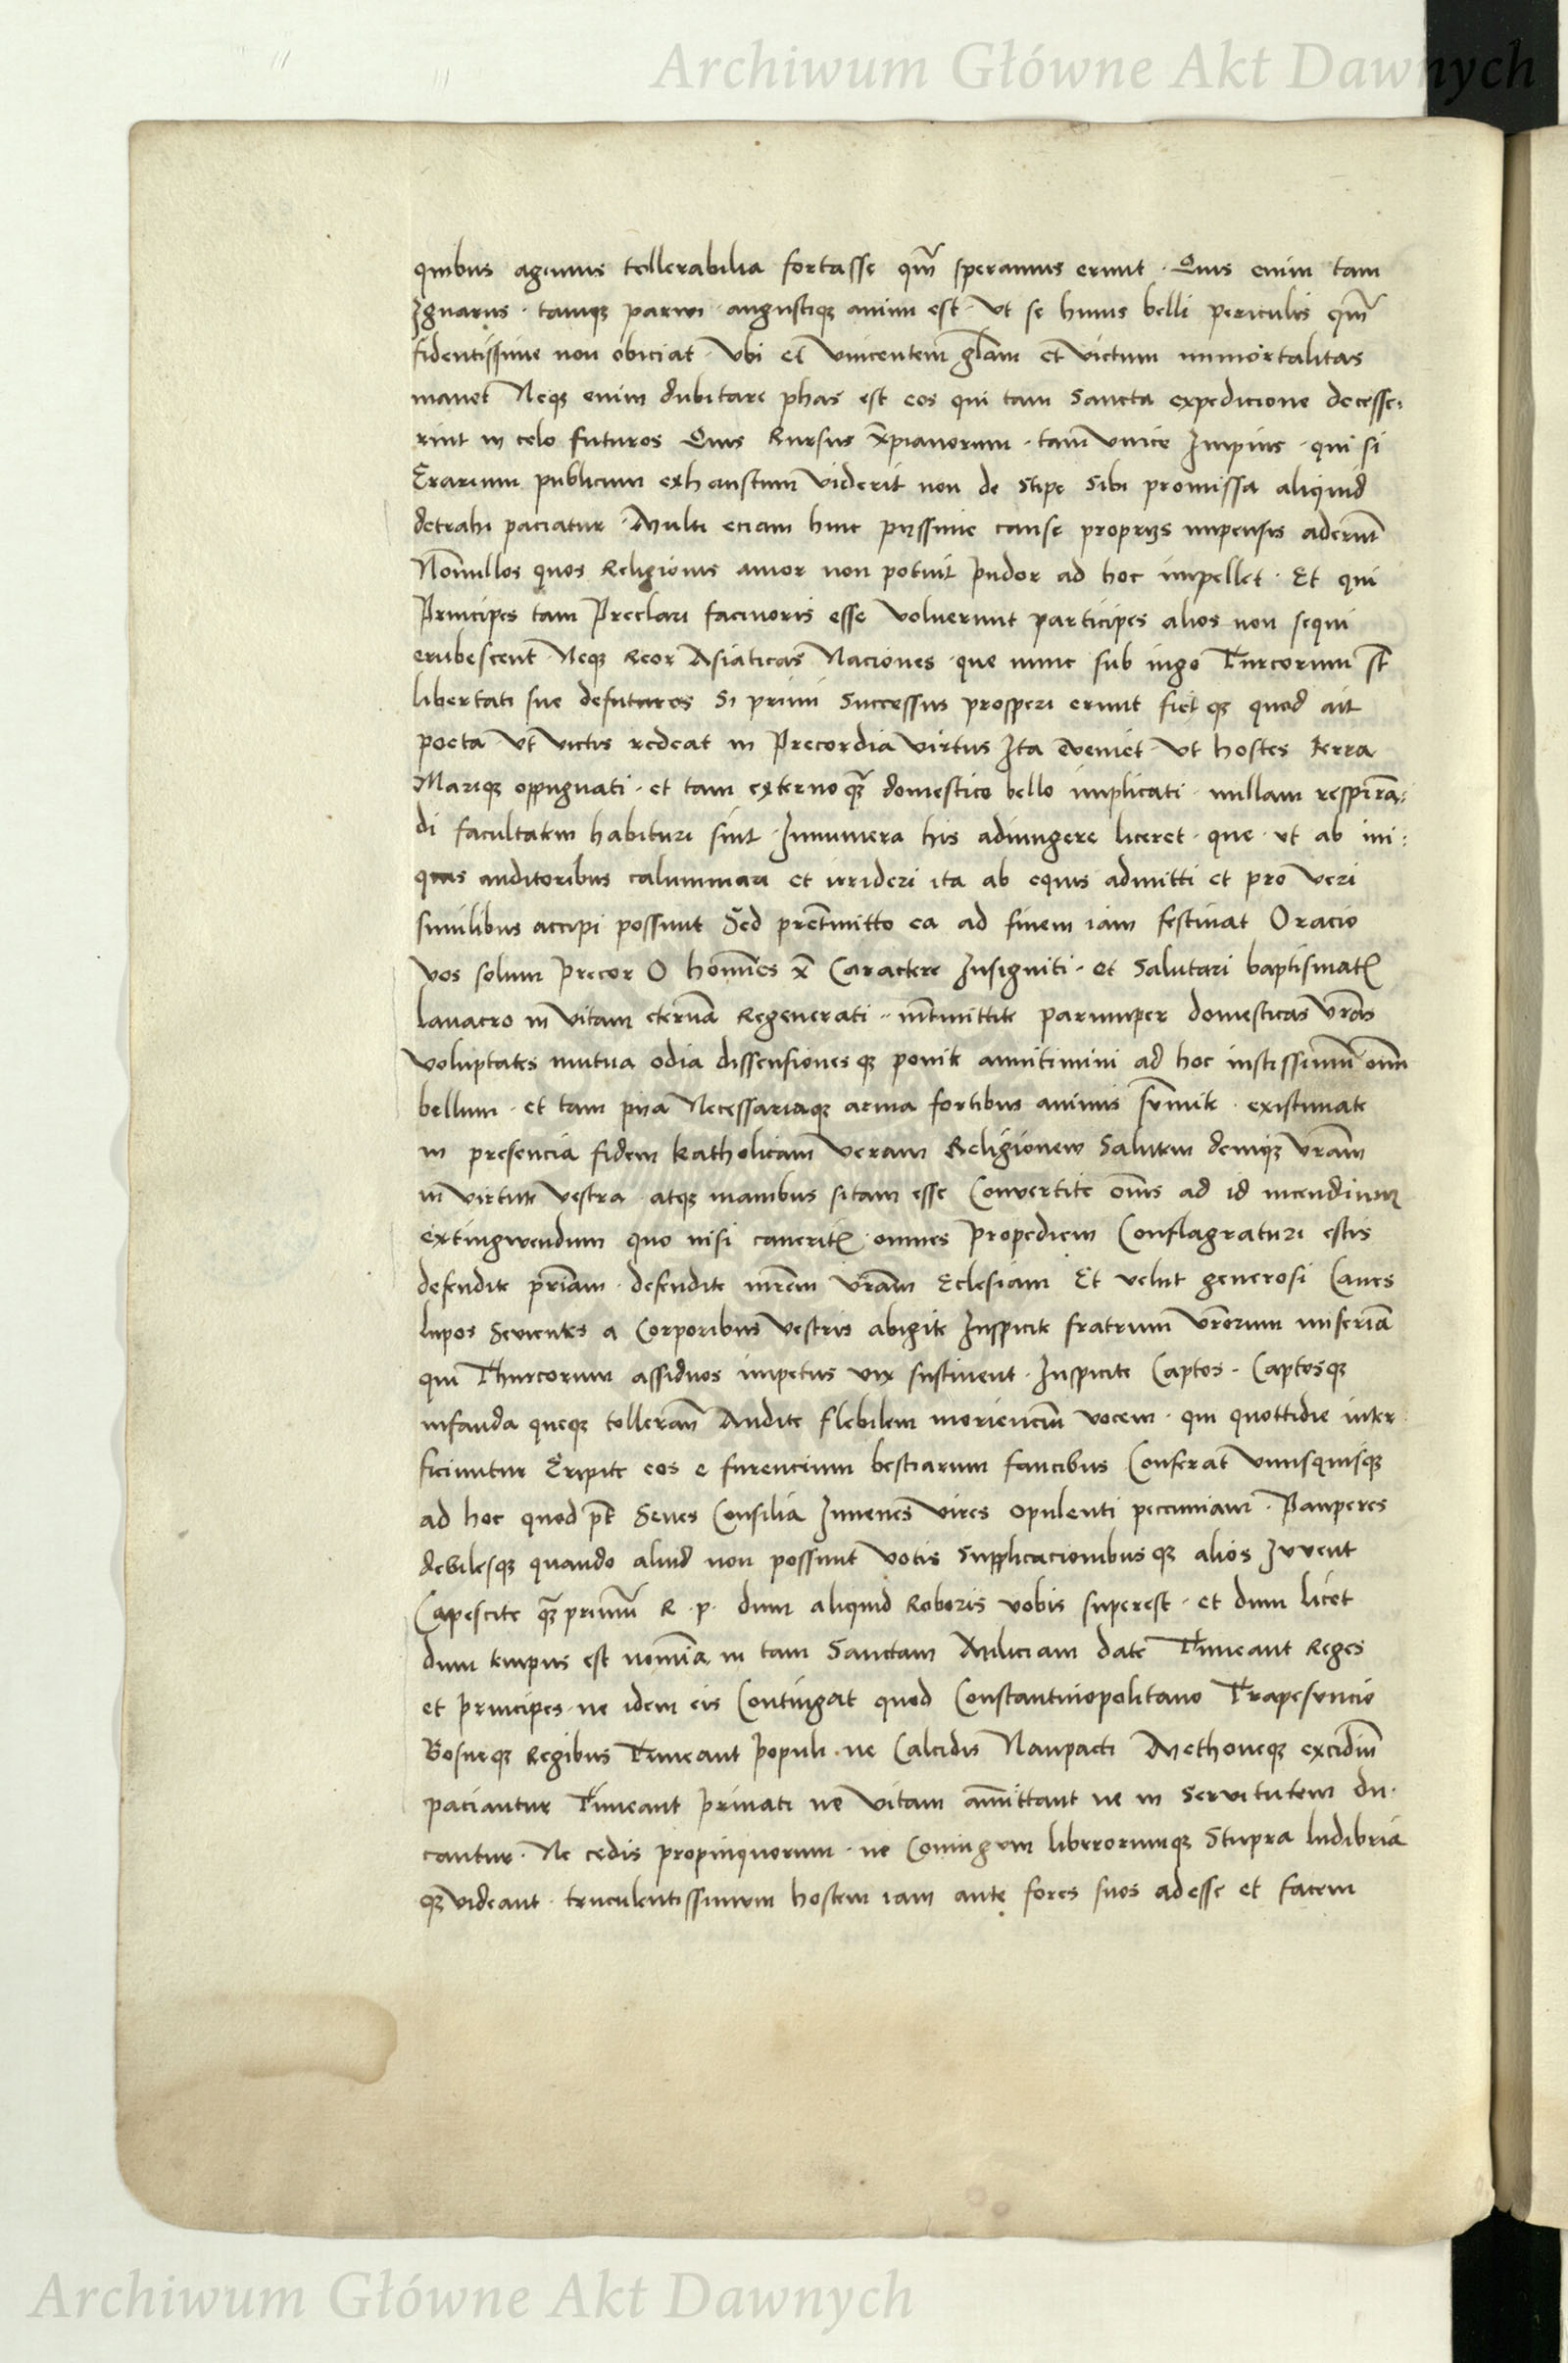 Archiwum Główne Akt Dawnych
quibus agimus tollerabilia fortasse qm̄ speramus erunt · Quis enim tam
Ignarus · tamqꝫ parui · angustiqꝫ animi est · Vt se huius belli periculis qm̄
fidentissime non obiciat · Vbi et Vincentem gl̄am et Victum immortalitas
manet Neqꝫ enim dubitare phas est eos qui tam Sancta expedicione decesse:
rint in celo futuros Quis Rursus xp̄ianorum · tam Vnice Impius · qui si
Erarium publicum exhaustum Viderit non de Stipe Sibi promissa aliquid
detrahi paciatur · Multi eciam huic pyssime cause proprijs impensis aderunt
Nōnullos quos Religionis amor non potuit pudor ad hoc impellet · Et qui
Principes tam Preclari facinoris esse Voluerunt participes alios non sequi
erubescent Neqꝫ Reor Asiaticas Naciones · que nunc sub iugo Turcorum st̄
libertati sue defuturos Si primi Successus prosperi erunt fiet qꝫ quod ait
poeta Vt Victis redeat in Precordia Virtus Ita eveniet · Vt hostes terra
Mariqꝫ oppugnati · et tam externo qꝫ̄ domestico bello implicati · nullam respirā:
di facultatem habituri sint · Innumera his adiungere liceret · que · vt ab ini:
quis auditoribus calumniari et irrideri ita ab equis admitti et pro Veri
similibus accipi possunt Sed pret̄mitto ea ad finem iam festinat Oracio
Vos solum precor O homīes x̄ Caractere Insigniti · et Salutari baptismatꝭ
lauacro in Vitam eternā Regenerati ·· int̄mittite parumper domesticas Vr̄as
Voluptates mutua odia dissensiones qꝫ ponite annitimini ad hoc iustissimū om̄
bellum · et tam pya Necessariaqꝫ arma fortibus animis sūmite · existimate
in presencia fidem katholicam Veram Religionem Salutem deniqꝫ Vr̄am
in Virtute Vestra · atqꝫ manibus sitam esse Convertite om̄s ad id incendium
extingwendum quo nisi caueritꝭ omnes Propediem Conflagraturi estis
defendite p̄riam · defendite mr̄em Vr̄am Eclesiam Et velut generosi Canes
lupos Seuientes a Corporibus Vestris abigite Inspicite fratrum Vr̄orum miseriā
qui Thurcorum assiduos impetus vix sustinent · Inspicite Captos · Captosqꝫ
infanda queqꝫ tollerān Audite flebilem morienciū vocem · qui quottidie inter
ficiuntur Eripite eos e furencium bestiarum faucibus Conferat Vnusquisqꝫ
ad hoc quod pt̄ Senes Consilia Iuuenes Vires Opulenti peccuniam · Pauperes
debilesqꝫ quando aliud non possunt Votis Supplicacionibus qꝫ alios Iuvent
Capescite qꝫ̄ primū R · p · dum aliquid Roboris vobis superest · et dum licet
dum tempus est nomīa in tam Sanctam Miliciam date Timeant Reges
et principes · ne idem eis Contingat quod Constantinopolitano Trapesuncio
Bosneqꝫ Regibus Timeant populi · ne Calcidis Naupacti Methoneqꝫ excidiū
paciantur Timeant priuati ne Vitam amittant ne in Servitutem du·
cantur · Ne cedis propinquorum · ne Coniugum liberorumqꝫ Stupra ludibria
qꝫ Videant · truculentissimum hostem iam ante fores suos adesse et facem
Archiwum Główne Akt Dawnych